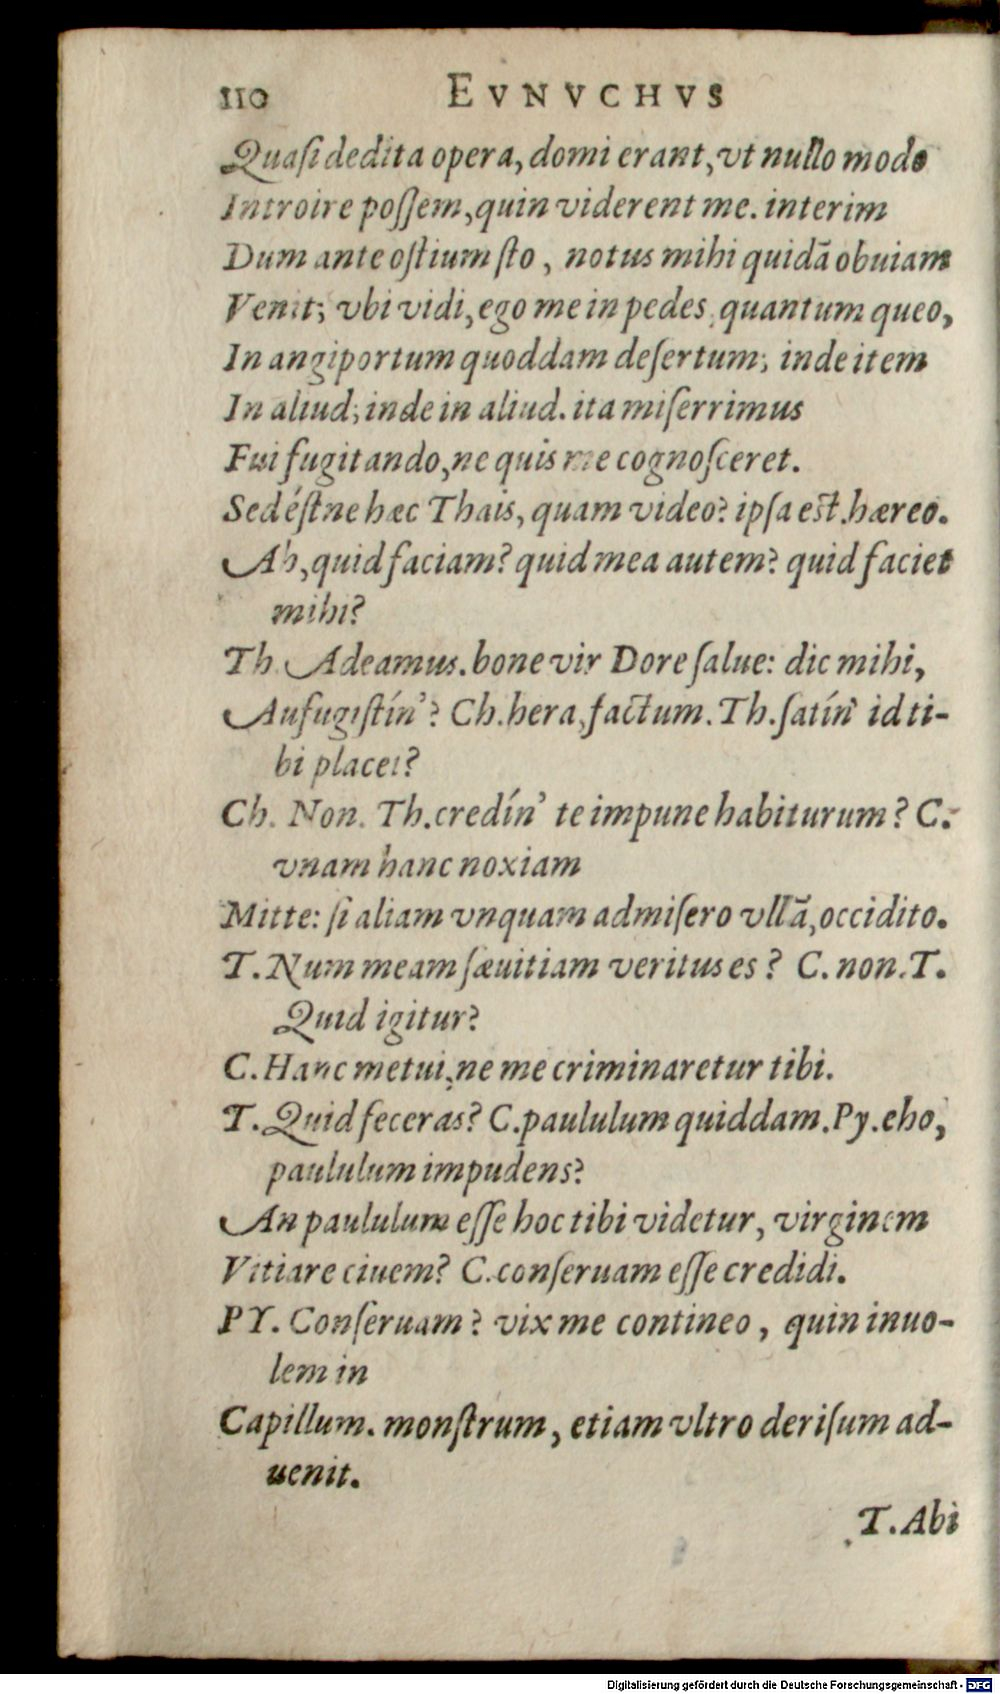 110 EVNVCHVS
Quaſi dedita opera, domi erant, vt nullo modo
Introire poſſem, quin viderent me. interim
Dum ante oſtium ſto, notus mihi quidā obuiam
Venit; vbi vidi, ego me in pedes, quantum queo,
In angiportum quoddam deſertum; inde item
In aliud; inde in aliud. ita miſerrimus
Fui fugitando, ne quis me cognoſceret.
Sed éſtne hæc Thais, quam video? ipſa eſt. hæreo.
Ah, quid faciam? quid mea autem? quid faciet
mihi?
Th. Adeamus. bone vir Dore ſalue: dic mihi,
Aufugiſtín'? Ch. hera, factum. Th. ſatín' id ti-
bi placet?
Ch. Non. Th. credín' te impune habiturum? C.
vnam hanc noxiam
Mitte: ſi aliam vnquam admiſero vllā, occidito.
T. Num meam ſæuitiam veritus es? C. non. T.
Quid igitur?
C. Hanc metui, ne me criminaretur tibi.
T. Quid feceras? C. paululum quiddam. Py. eho,
paululum impudens?
An paululum eſſe hoc tibi videtur, virginem
Vitiare ciuem? C. conſeruam eſſe credidi.
PY. Conſeruam? vix me contineo, quin inuo-
lem in
Capillum. monſtrum, etiam vltro deriſum ad-
uenit.
T. Abi
Digitalisierung gefördert durch die Deutsche Forschungsgemeinschaft - DFG